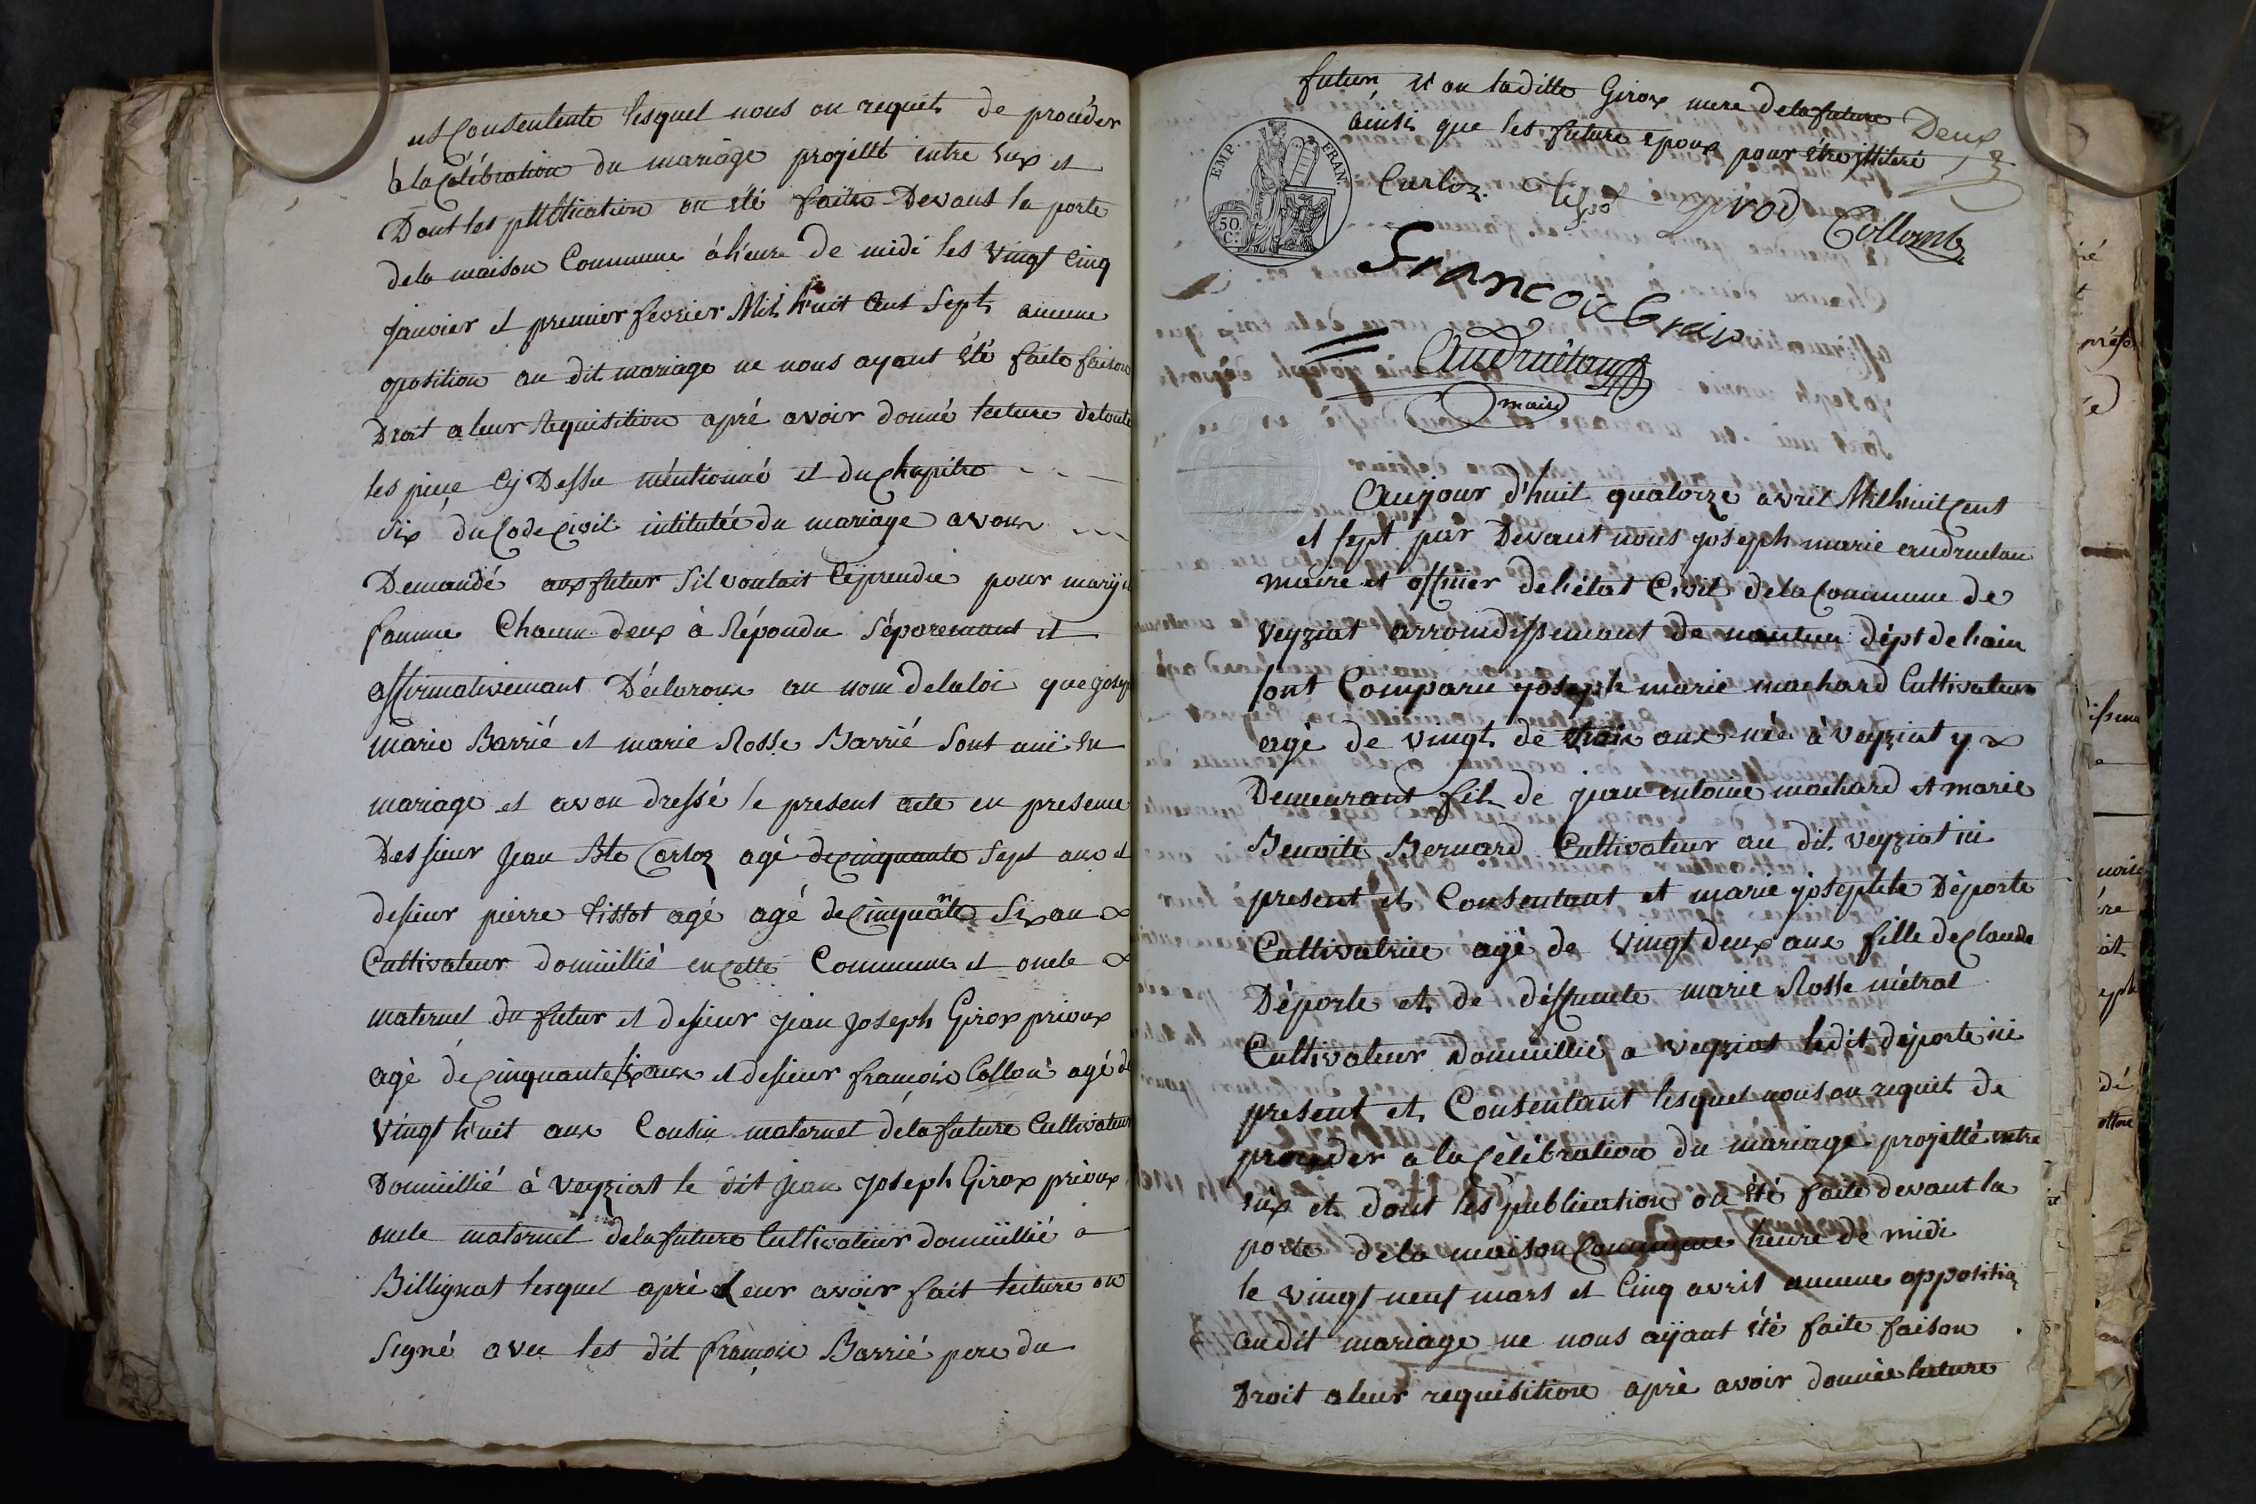 et Consentente lesquel nous on requit de procéder
à la Célébration du mariage projetté entre Eux et
Dont les publication on été faite Devant la porte
dela maison Commune à h'eure de midi les vingt Cinq
janvier et premier février Mil h'uit Cent Sept aucune
opposition au dit mariage ne nous ayant été faite faison
Droit a leur Requisition apré avoir donné lecture detoute
les pieçe Cy Dessu méntionné et du Chapitre
Six du Code Civil intitutée du mariage avons
Demandé aux futur Sil voulait Ce prendre pour mary et
famme Chacun deux à Répondu Séporement et
affirmativemant Déclarons au nom delaloi que joseph
marie Barrié et marie Rosse Barrié Sont uni En
mariage et avon dressé le present acte en presence
Des sieur Jean Bte Carloz agé de cinquante Sept ans et
desieur pierre tissot agé agé de Cinquante Six an
Cultivateur domiillié en Cette Commune et oncle
maternel du futur et desieur jean joseph Girox prioux
agé de cinquante six ans et desieur françois Collon agé de
vingt h'uit ans Cousin maternel dela future Cultivateur
Domiillié à veyziat le dit jean joseph Girox prioux
oncle maternel dela future Cultivateur domiillié a
Billignat lesquel aprè Leur avoir fait lecture on
Signé avec les dit françois Barrié pere du
futur, et on ladille Girox mere dela future
ainsi que les future epoux pour être illiteré
Deux
EMP. FRAN.
50 C.
Carloz. Tissot girod Collomb
Francoi
Audruetan
maire
Aujour d'huit quatorze avril Milhuit Cent
et sept par Devant nous joseph marie audruetan
maire et officier de l'état Civil dela Commune de
veyziat arrondissemant de nantua dépt de l'ain
sont Comparu joseph marie machard Cultivateur
agé de vingt de trois ans née à veyziat y
Demeurant fils de jean entoine machard et marie
Benoite Bernard Cultivateur au dit veyziat ici
present et Consentant et marie josephte Déporte
Cultivatrice agé de vingt deux ans fille de Claude
Déporte et de déffuncte marie Rosse métral
Cultivateur Domiillié a veyziat ledit déporte ici
present et Consentant lesquel nous on requit de
proceder a la Célébration du mariage projetté entre
Eux et dont les publication on été faite devant la
porte dela maison Commune heure de midi
le vingt neuf mars et Cinq avril aucune oppositio
audit mariage ne nous ayant été faite faison
Droit a leur requisition aprè avoir donnée lecture